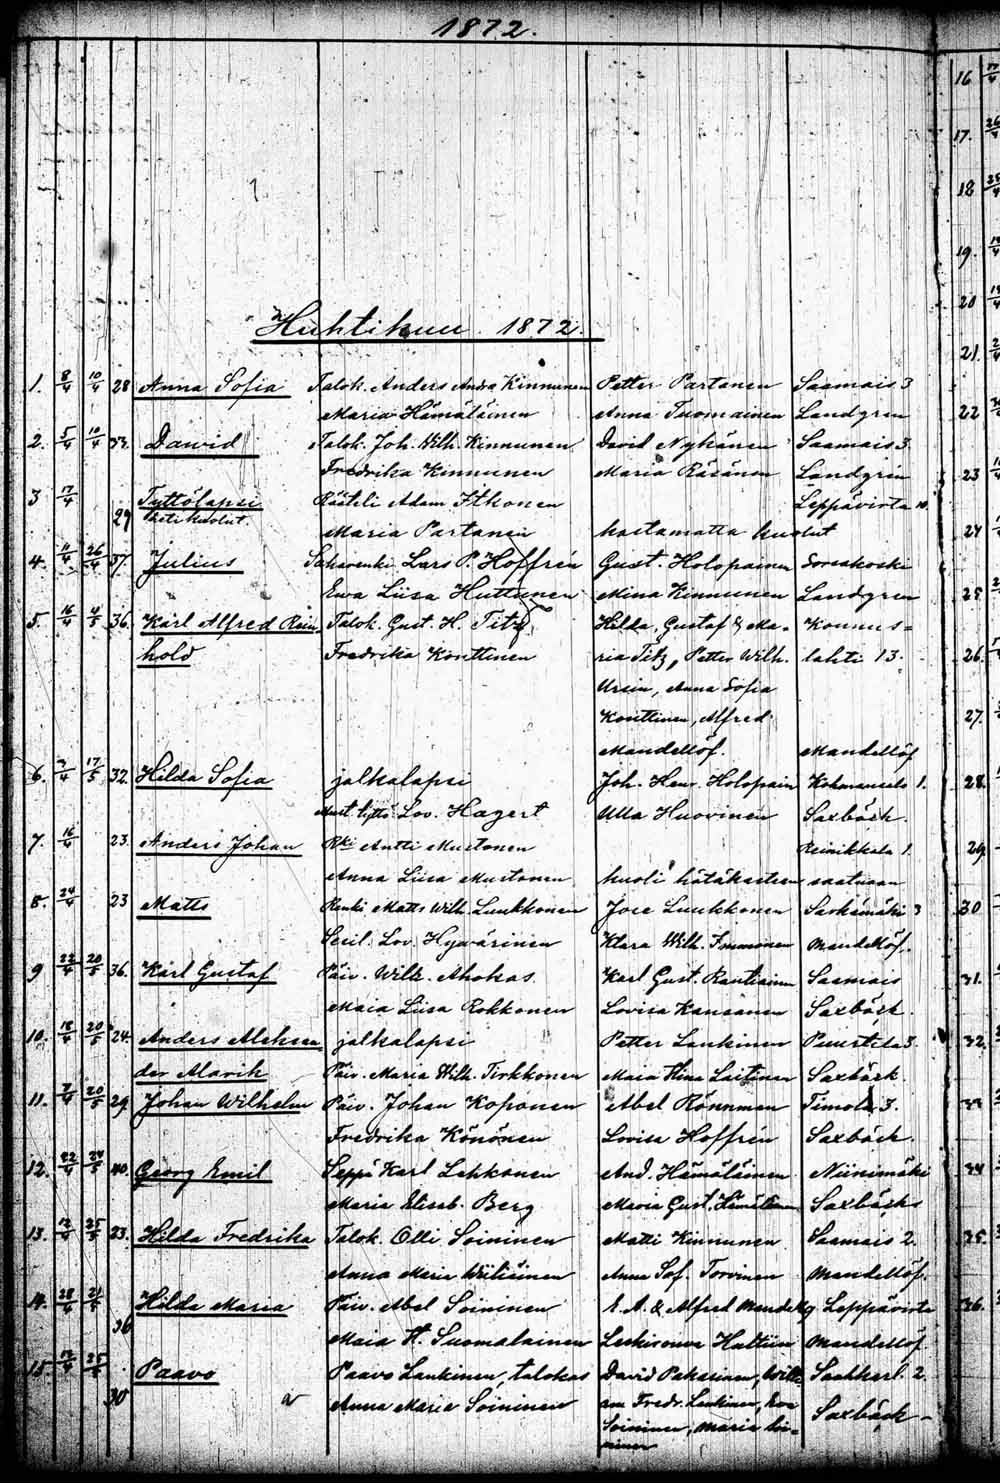 1872.
Huhtikuu 1872.
1. 8/4 10/4 28 Anna Sofia Talok. Anders Andra Kinnunen Petter Partanen Saamais 3
Maria Hämäläinen Anna Tuomainen Landgren
2. 5/4 10/4 33. Dawid Talok. Joh. Wilh. Kinnunen David Nykänen Saamais 3.
Fredrika Kinnunen Maria Räsänen Landgrén
3 17/4 29 Tyttölapsi Räätäli Adam Itkonen Leppävirta 10.
heti kuollut. Maria Partanen kastamatta kuollut
4. 11/4 26/4 37. Julius Lars P. Hoffrén Gust. Holopainen Sorsakoski
Ewa Liisa Huttunen Mina Kinnunen Landgren
5. 16/4 4/5 36. Karl Alfred Rein Talok. Gust. H. Titz Hilda, Gustaf & Ma- Konnus=
hold Fredrika Konttinen ria Titz, Petter Wilh. lahti 13.
Ursin, Anna Sofia
Konttinen, Alfred
Mandellöf. Mandellöf
6. 7/4 17/5 32. Hilda Sofia jalkalapsi Joh. Henr. Holopain 1.
Lov. Hagert Ulla Huovinen Saxbäck.
7. 16/4 23. Anders Johan Antti Mustonen Reinikkala 1.
Anna Liisa Mustonen kuoli hätäkasteen saatuaan
8. 24/4 23 Matts Renki Matts Wilh. Luukkonen Jose Luukkonen Sarkamäki 3
Lov. Hywärinen Klara Wilh. Immonen Mandellöf.
9 22/4 20/5 36. Karl Gustaf Päiv. Wilh. Ahokas. Karl Gust. Rautiainen Saamais
Maia Liisa Rokkonen Lovisa Kansanen Saxbäck.
10. 18/4 20/5 24. Anders Aleksan jalkalapsi Petter Lankinen 3.
der Alarik Päiv. Maria Wilh. Tirkkonen Maia Stina Laitinen Saxbäck.
11. 7/4 20/5 29. Johan Wilhelm Päiv. Johan Koponen Abel Rönnman Timola 3.
Fredrika Könönen Lovisa Hoffrén Saxbäck.
12. 22/4 24/5 40. Georg Emil Seppä Karl Lekkonen And. Hämäläinen Niinimäki
Maria Elisab. Berg Maria Gust. Hämäläinen Saxbäck
13. 12/4 25/5 23. Hilda Fredrika Talok. Olli Soininen Matti Kinnunen Saamais 2.
Anna Maria Wiiliäinen Anna Sof. Torvinen Mandellöf.
14. 28/4 21/5 36 Hilda Maria Päiv. Abel Soininen E. A. & Alfred Mandellöf Leppävirta
Maia St. Suomalainen Leskirouva Haltiin Mandellöf.
15. 12/4 25/5 30 Paavo Paavo Lankinen, talokas David Pakarinen, Wilh= Saahkarl. 2.
Anna Maria Soininen am Fredr. Lankinen, Eva Saxbäck
Soininen, Maria Soi=
ninen
16
17.
18
19.
20
21.
22
23
24
25.
26.
27.
28.
29.
30
31.
32.
33
34
35.
36.